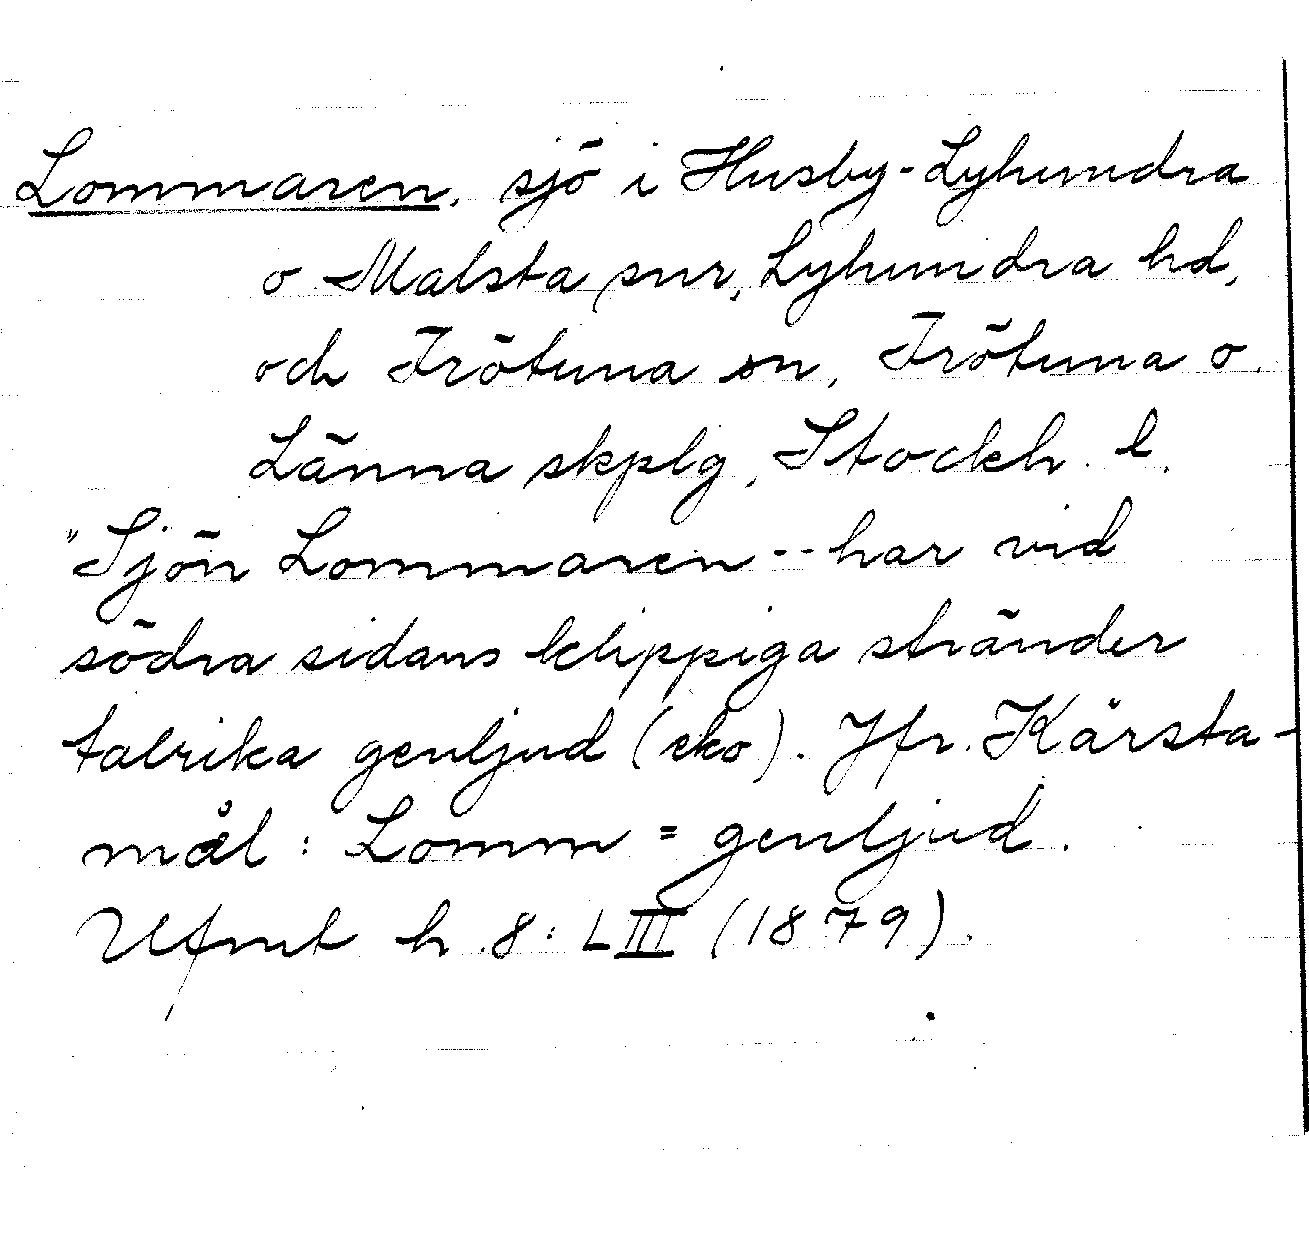 Lommaren, sjö i Husby-Lyhundra
o Malsta snr, Lyhundra hd,
och Frötuna sn, Frötuna o
Länna skplg, Stockh. l.
"Sjön Lommaren -- har vid
södra sidans klippiga stränder
talrika genljud (eko). Jfr. Kårsta-
mål: Lomm = genljud.
Ufmt h. 8: LIII (1879).